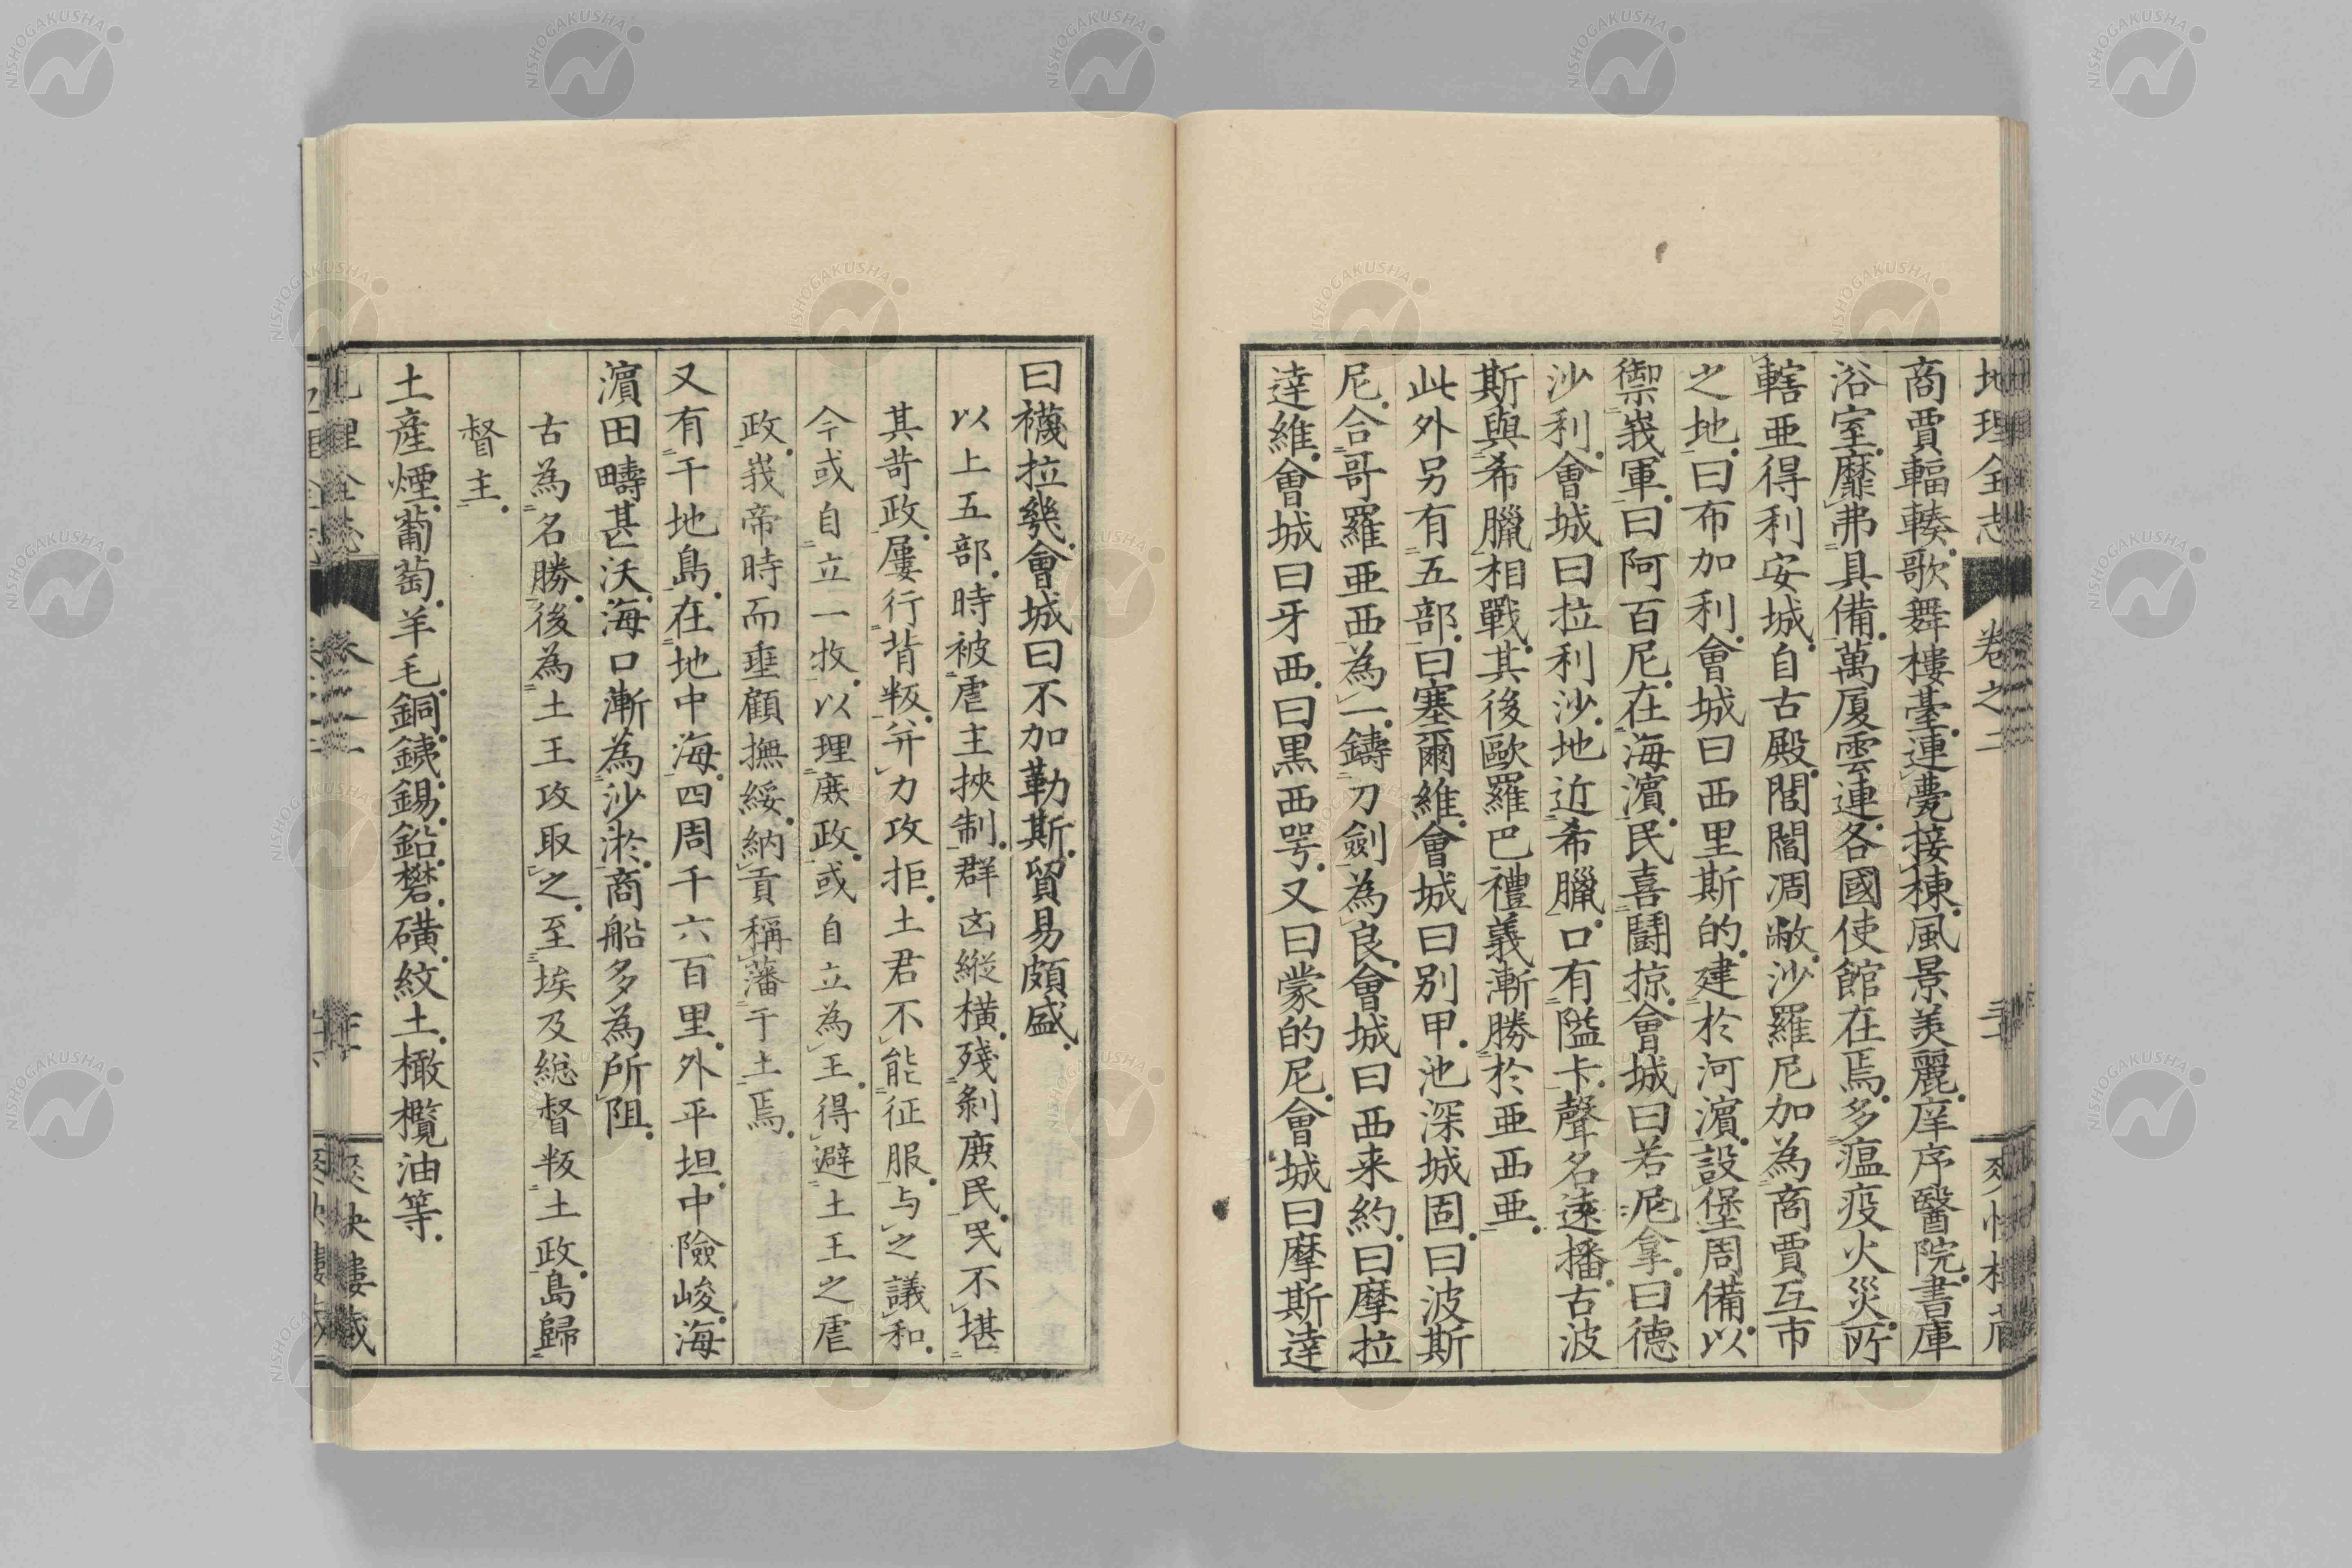 地理全志 卷之二
商賈輻輳歌舞樓臺連甍接棟風景美麗庠序醫院書庫
浴室靡弗具備萬厦雲連各國使館在焉多瘟疫火災所
轄亜得利安城自古殿閣閭凋敝沙羅尼加為商賈互市
之地曰布加利會城曰西里斯的建於河濵設堡周備以
禦峩軍曰阿百尼在海濵民喜鬪掠會城曰若尼拿曰德
沙利會城曰拉利沙地近希臘口有隘卡聲名遠播古波
斯與希臘相戰其後歐羅巴禮義漸勝於亜西亜
此外另有五部曰塞爾維會城曰別甲池深城固曰波斯
尼合哥羅亜西為一鑄刀劍為良會城曰西来約曰摩拉
達維會城曰牙西曰黒西咢又曰蒙的尼會城曰摩斯達
曰襪拉幾會城曰不加勒斯貿易頗盛
以上五部時被虐主挾制群凶縱橫殘剝庶民民不堪
其苛政屢行背叛并力攻拒土君不能征服与之議和
今或自立一牧以理庶政或自立為王得避土王之虐
政峩帝時而垂顧撫綏納貢稱藩于土焉
又有干地島在地中海四周千六百里外平坦中險峻海
濵田疇甚沃海口漸為沙淤商船多為所阻
古為名勝後為土王攻取之至埃及総督叛土政島歸
督主
土產煙葡萄羊毛銅銕錫鉛礬磺紋土橄欖油等